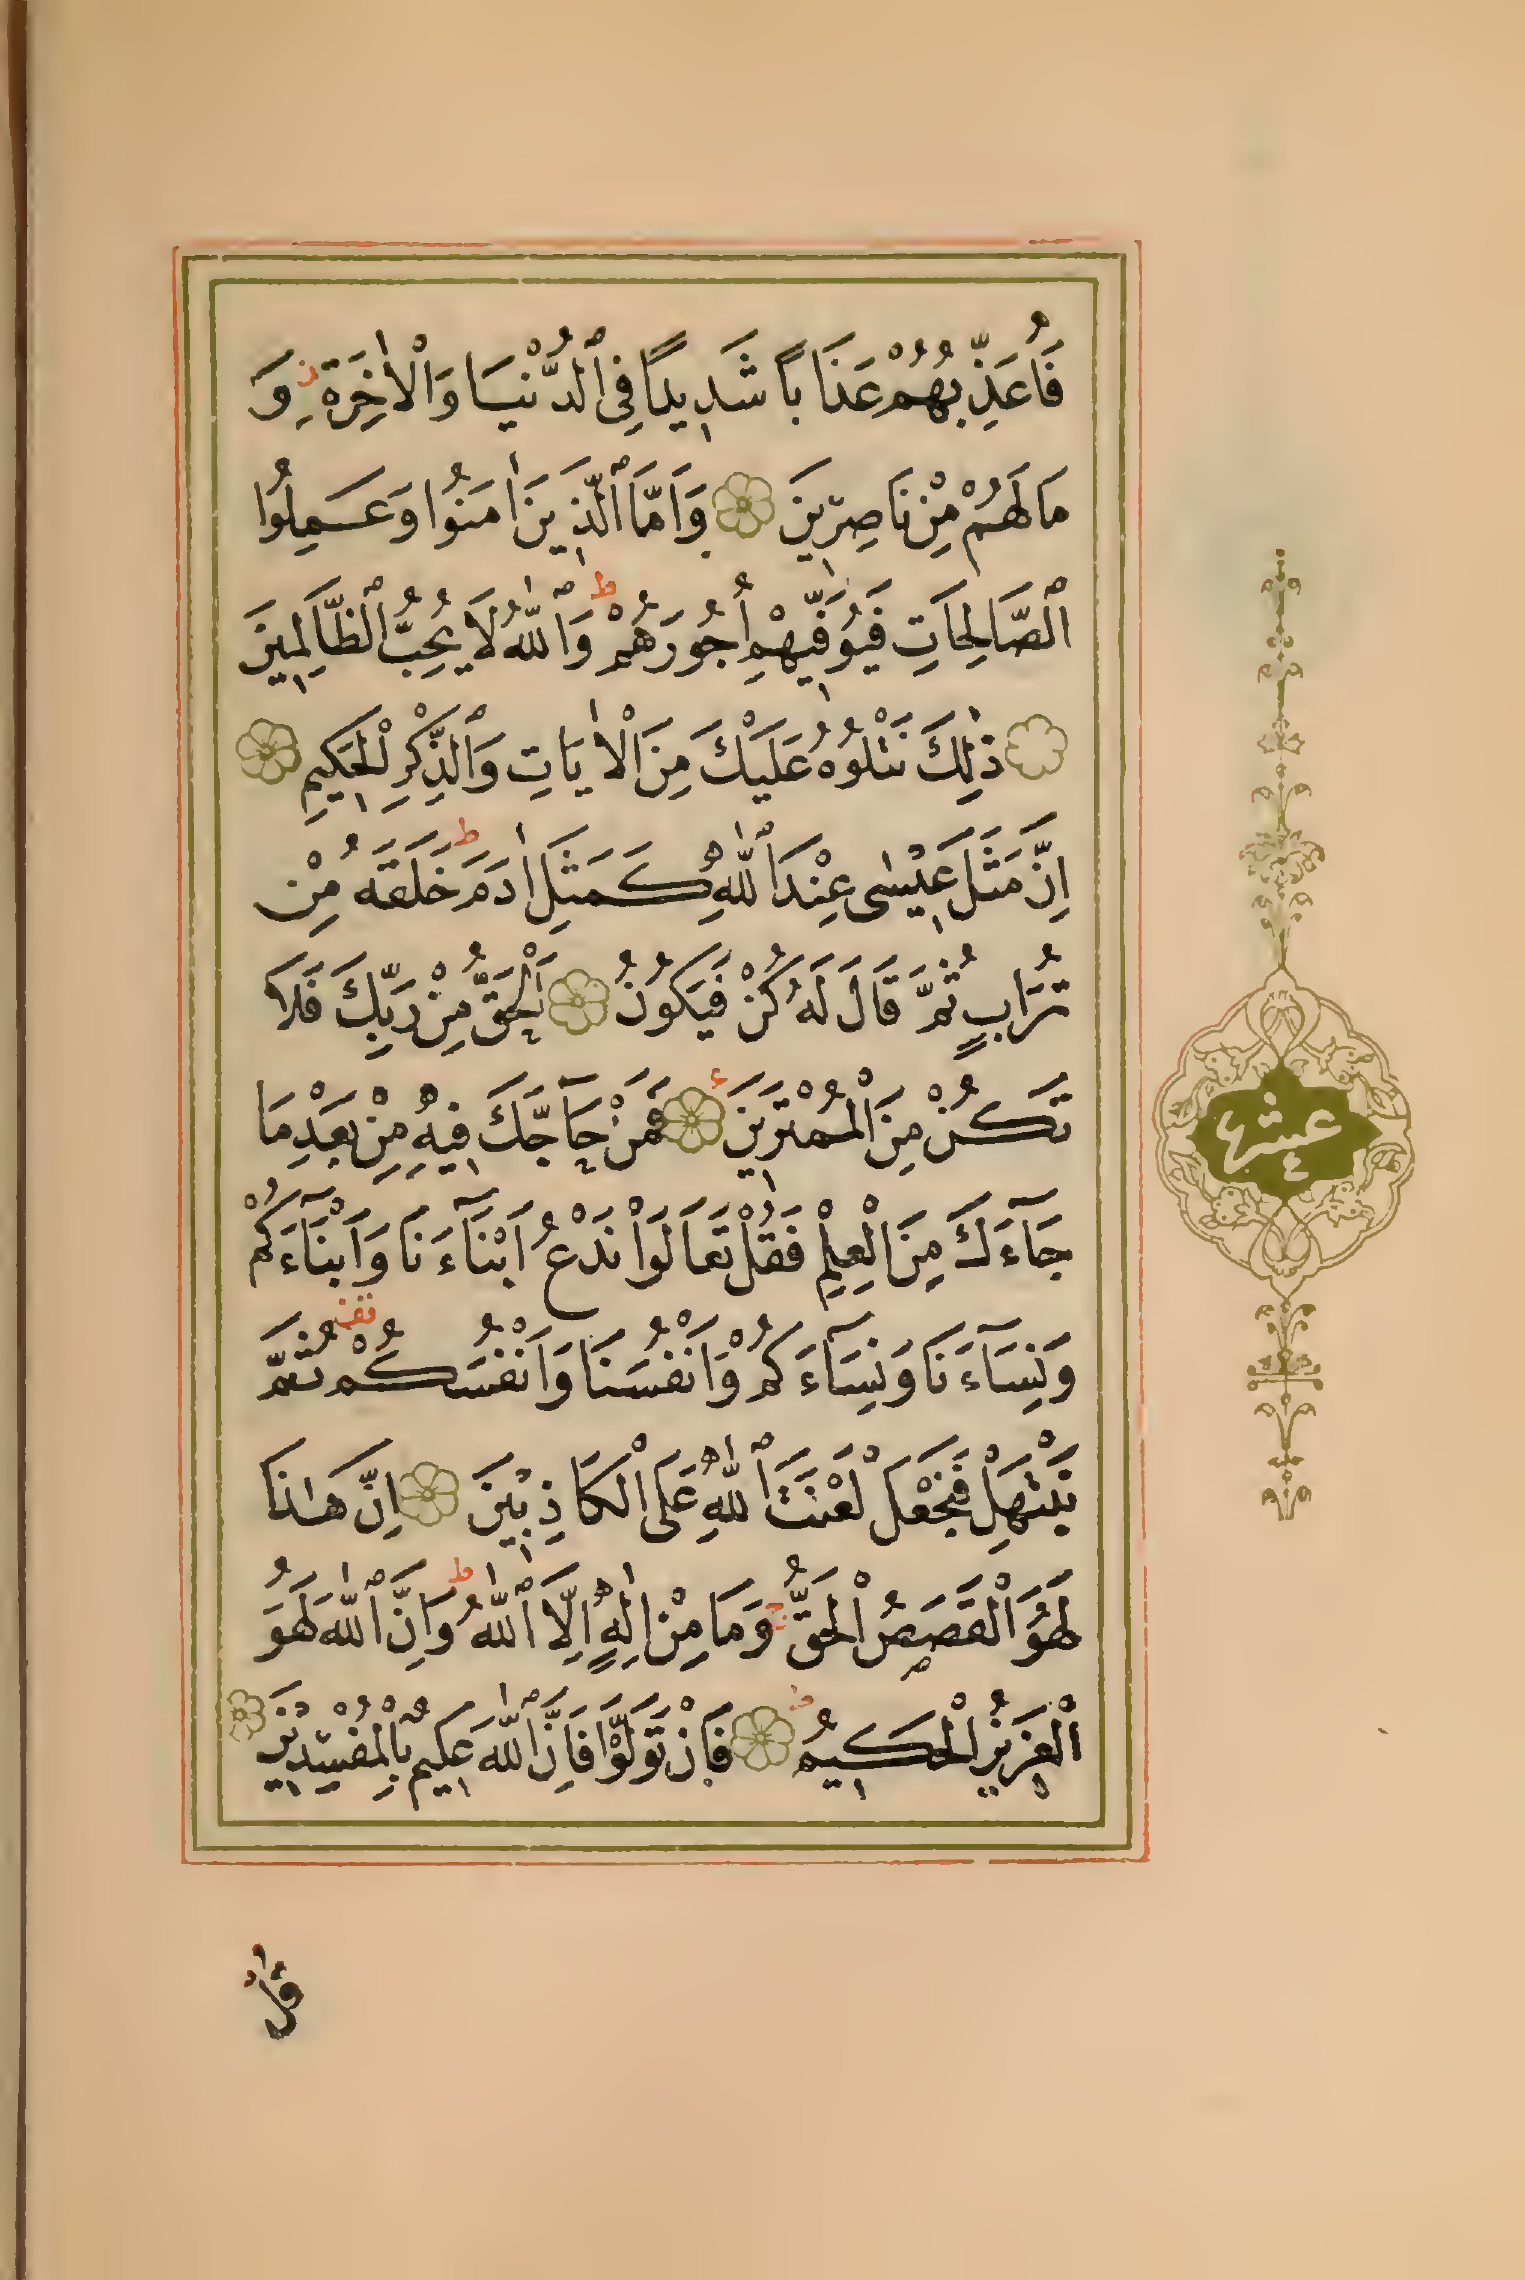 فَاُعَذِّبُهُمْ عَذَابًا شَدٖيدًا فِى ٱلدُّنْيَا وَالْاٰخِرَةِ ز وَ
مَا لَهُمْ مِنْ نَاصِرٖينَ وَاَمَّا ٱلَّذٖينَ اٰمَنُوا وَعَمِلُوا
ٱلصَّالِحَاتِ فَيُوَفّٖيهِمْ اُجُورَهُمْ ط وَٱللّٰهُ لَا يُحِبُّ ٱلظَّالِمٖينَ
ذٰلِكَ نَتْلُوهُ عَلَيْكَ مِنَ الْاٰيَاتِ وَٱلذِّكْرِ الْحَكٖيمِ
اِنَّ مَثَلَ عٖيسٰى عِنْدَ ٱللّٰهِ كَمَثَلِ اٰدَمَ ط خَلَقَهُ مِنْ
تُرَابٍ ثُمَّ قَالَ لَهُ كُنْ فَيَكُونُ اَلْحَقُّ مِنْ رَبِّكَ فَلَا
تَكُنْ مِنَ الْمُمْتَرٖينَ فَمَنْ حَآجَّكَ فٖيهِ مِنْ بَعْدِ مَا
جَآءَكَ مِنَ الْعِلْمِ فَقُلْ تَعَالَوْا نَدْعُ اَبْنَآءَنَا وَاَبْنَآءَكُمْ
وَنِسَآءَنَا وَنِسَآءَكُمْ وَاَنْفُسَنَا وَاَنْفُسَكُمْ ثُمَّ
نَبْتَهِلْ فَنَجْعَلْ لَعْنَتَ ٱللّٰهِ عَلَى الْكَاذِبٖينَ اِنَّ هٰذَا
لَهُوَ الْقَصَصُ الْحَقُّ وَمَا مِنْ اِلٰهٍ اِلَّا ٱللّٰهُ ط وَاِنَّ ٱللّٰهَ لَهُوَ
الْعَزٖيزُ الْحَكٖيمُ فَاِنْ تَوَلَّوْا فَاِنَّ ٱللّٰهَ عَلٖيمٌ بِالْمُفْسِدٖينَ
قُلْ
عشر
٤